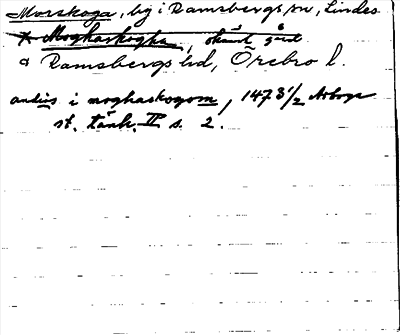 Morskoga, by i Ramsbergs sn, Lindes
* Moghaskogha, okänd gård
o Ramsbergs hd, Örebro l.
andirs i moghaskogom, 1473 1/2 Arboga
st. tänk. II s. 2.